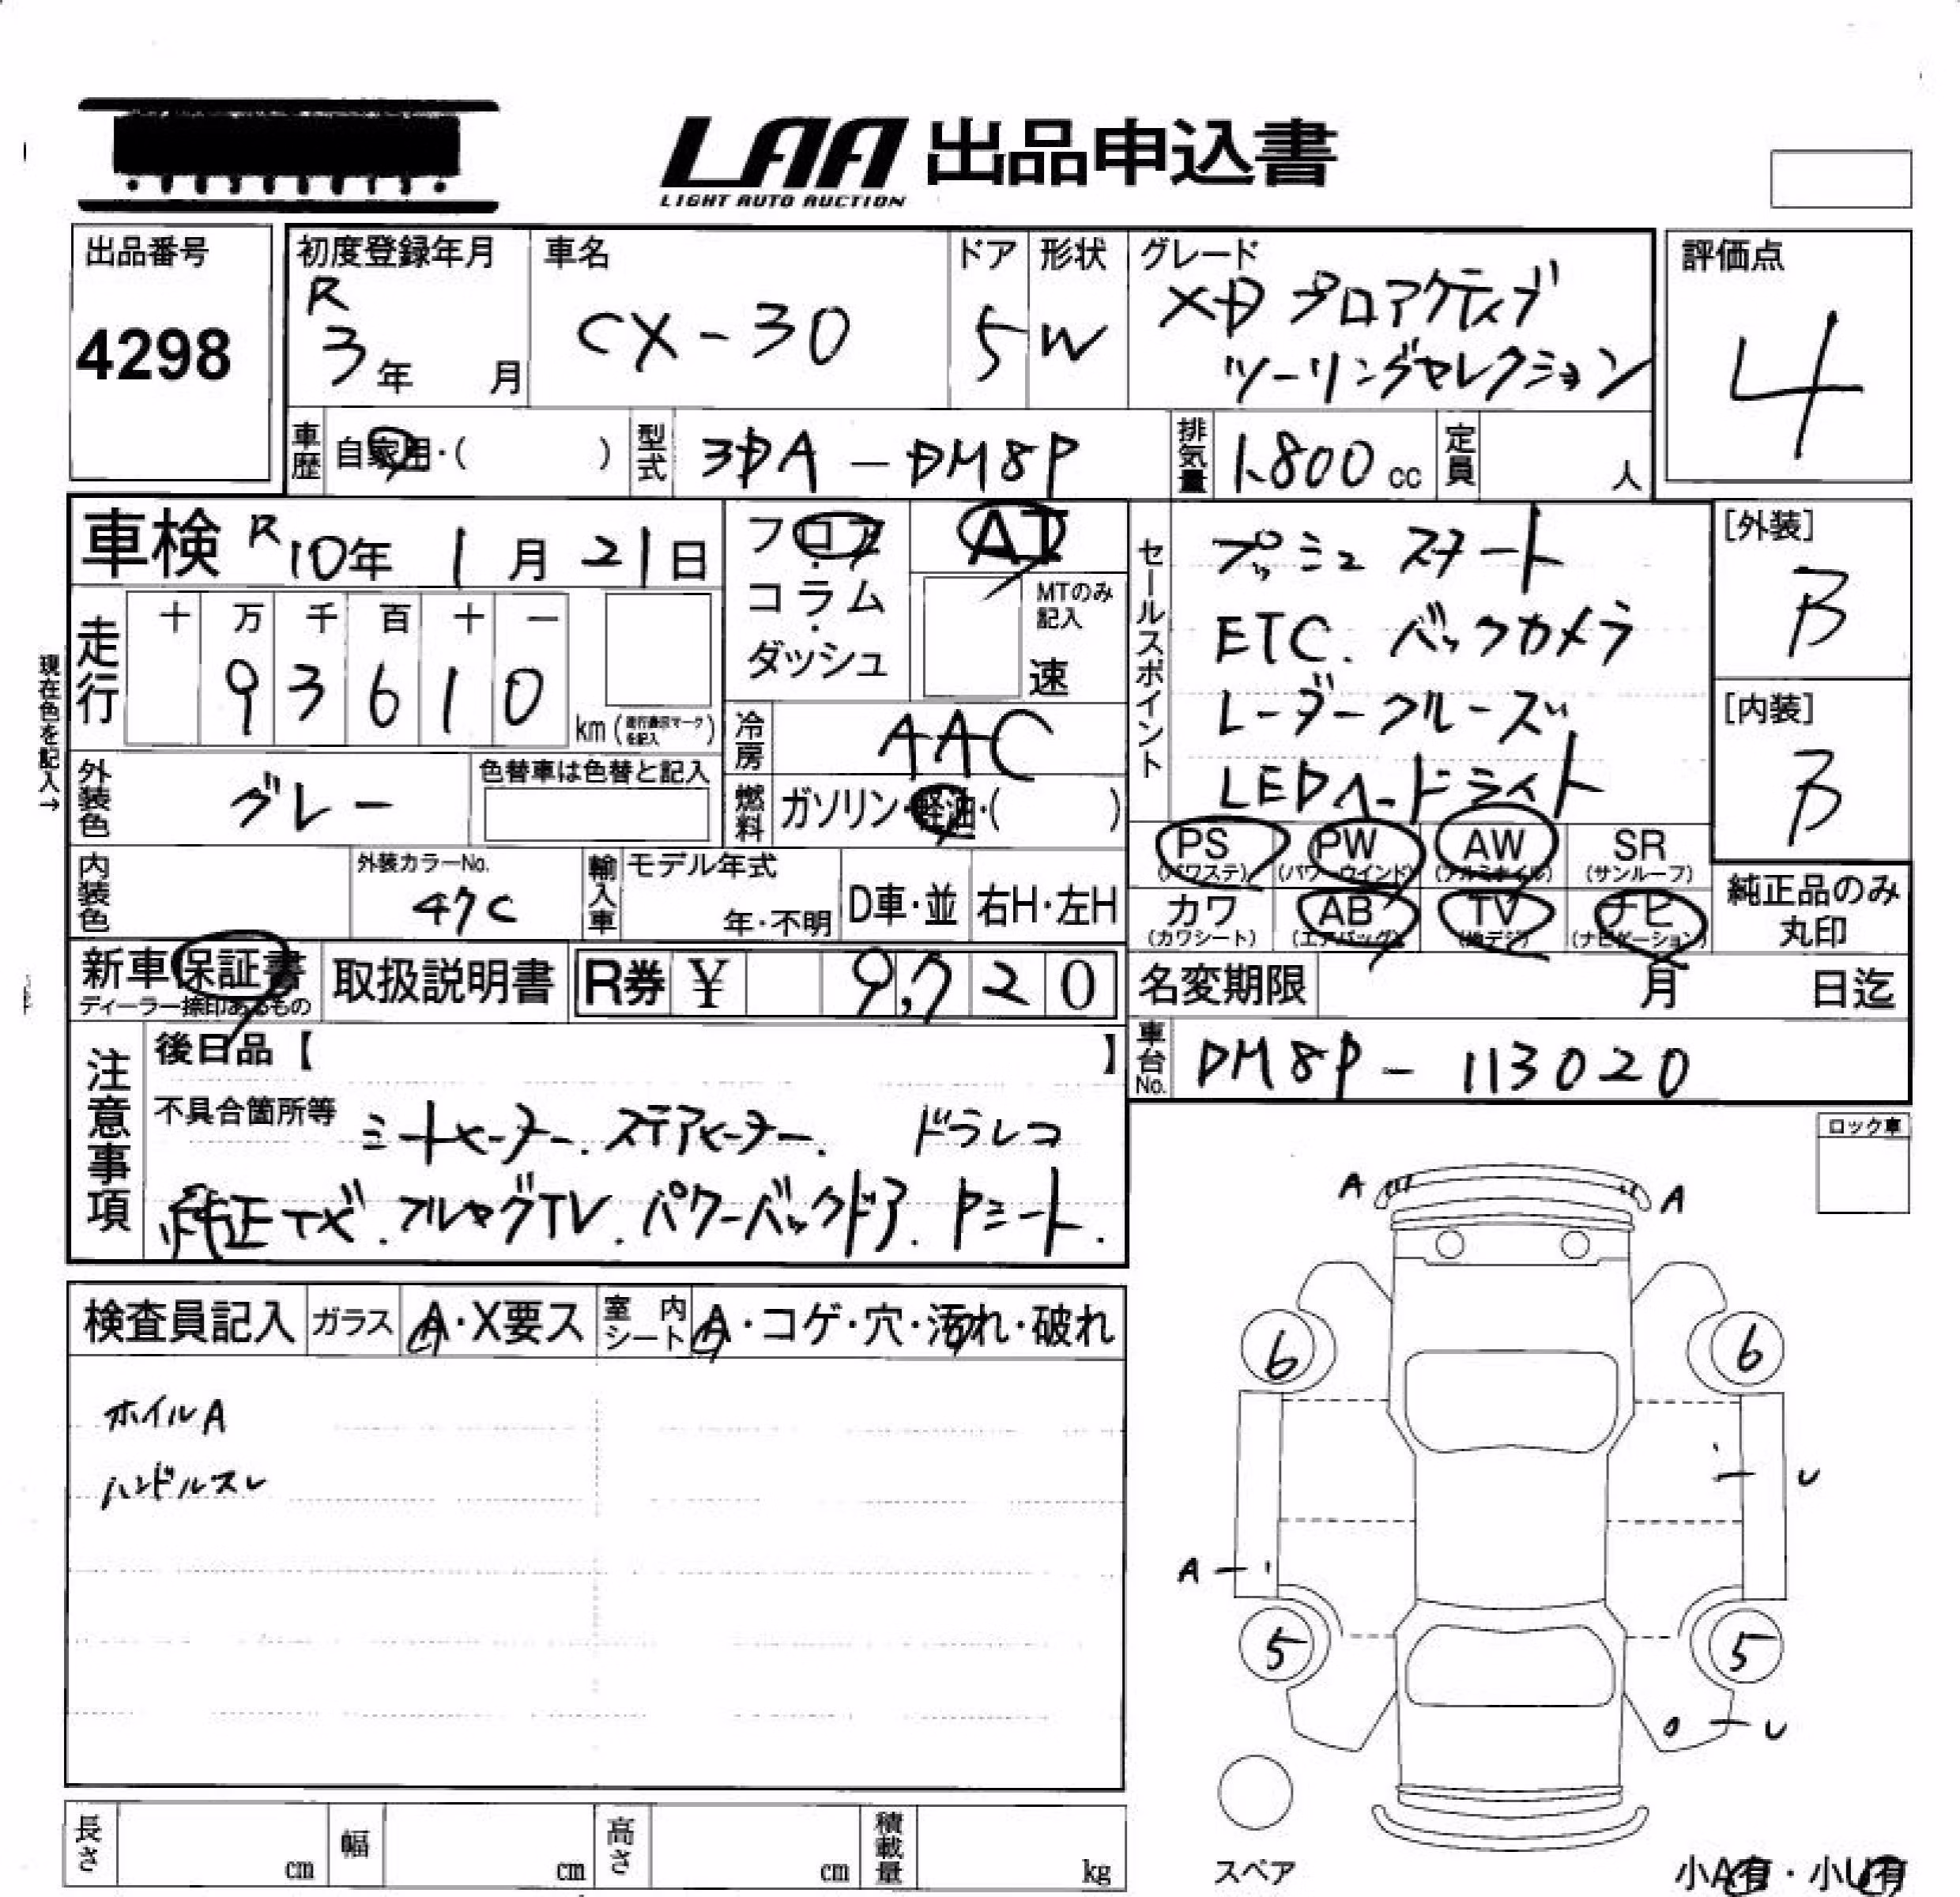 LAA 出品申込書
LIGHT AUTO AUCTION
出品番号
4298
初度登録年月
R
3年 月
車名
CX-30
ドア
5
形状
W
グレード
XD プロアクティブ
ツーリングセレクション
評価点
4
車歴 自家用・( )
型式 3DA-DM8P
排気量 1.800 cc
定員 人
車検 R10年 1月 21日
フロア
コラム
ダッシュ
AT
MTのみ
記入
速
現在色を記入→
走行
十 万 千 百 十 一
9 3 6 1 0
km (走行表示マークを記入)
冷房 AAC
外装色 グレー
色替車は色替と記入
燃料 ガソリン・軽油・( )
内装色
外装カラーNo.
47C
輸入車
モデル年式
年・不明
D車・並
右H・左H
セールスポイント
プッシュスタート
ETC. バックカメラ
レーダークルーズ
LEDヘッドライト
[外装]
B
[内装]
B
PS PW AW SR
(パワステ) (パワーウインド) (アルミホイル) (サンルーフ)
カワ AB TV ナビ
(カワシート) (エアバッグ) (地デジ) (ナビゲーション)
純正品のみ
丸印
新車保証書
ディーラー捺印あるもの
取扱説明書
R券 ¥ 9,720
名変期限 月 日迄
車台No. DM8P-113020
注意事項
後日品【 】
不具合箇所等 シートヒーター. ステアヒーター. ドラレコ
純正ナビ. フルセグTV. パワーバックドア. Pシート.
ロック車
検査員記入
ガラス A・X要ス
室内シート A・コゲ・穴・汚れ・破れ
ホイルA
ハンドルスレ
A A
6 6
U
A
5 5
U
スペア
小A有・小U有
長さ cm
幅 cm
高さ cm
積載量 kg